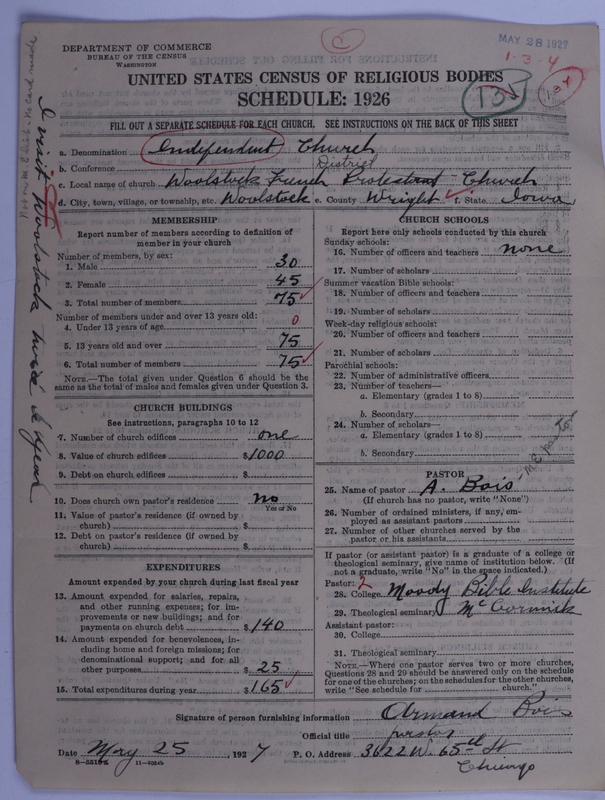 MAY 28 1927
C
1-3-4
DEPARTMENT OF COMMERCE
BUREAU OF THE CENSUS
WASHINGTON
UNITED STATES CENSUS OF RELIGIOUS BODIES
SCHEDULE: 1926
135
134
FILL OUT A SEPARATE SCHEDULE FOR EACH CHURCH. SEE INSTRUCTIONS ON THE BACK OF THIS SHEET
a. Denomination Independent Church
b. Conference District
c. Local name of church Woolstock French Protestant Church
d. City, town, village, or township, etc. Woolstock e. County Wright f. State Iowa
I visit Woolstock twice a year
MEMBERSHIP
Report number of members according to definition of
member in your church
Number of members, by sex:
1. Male 30
2. Female 45
3. Total number of members 75
Number of members under and over 13 years old:
4. Under 13 years of age 0
5. 13 years old and over 75
6. Total number of members 75
NOTE.—The total given under Question 6 should be
same as the total of males and females given under Question 3.
CHURCH BUILDINGS
See instructions, paragraphs 10 to 12
7. Number of church edifices one
8. Value of church edifices $1000
9. Debt on church edifices $
10. Does church own pastor's residence No
Yes or No
11. Value of pastor's residence (if owned by
church) $
12. Debt on pastor's residence (if owned by
church) $
EXPENDITURES
Amount expended by your church during last fiscal year
13. Amount expended for salaries, repairs,
and other running expenses; for im-
provements or new buildings; and for
payments on church debt $140
14. Amount expended for benevolences, in-
cluding home and foreign missions; for
denominational support; and for all
other purposes $25
15. Total expenditures during year $165
CHURCH SCHOOLS
Report here only schools conducted by this church
Sunday schools:
16. Number of officers and teachers none
17. Number of scholars
Summer vacation Bible schools:
18. Number of officers and teachers
19. Number of scholars
Week-day religious schools:
20. Number of officers and teachers
21. Number of scholars
Parochial schools:
22. Number of administrative officers
23. Number of teachers—
a. Elementary (grades 1 to 8)
b. Secondary
24. Number of scholars—
a. Elementary (grades 1 to 8)
b. Secondary
PASTOR
25. Name of pastor A. Bois
(If church has no pastor, write "None")
26. Number of ordained ministers, if any, em-
ployed as assistant pastors
27. Number of other churches served by the
pastor or his assistants
If pastor (or assistant pastor) is a graduate of a college or
theological seminary, give name of institution below. (If
not a graduate, write "No" in the space indicated.)
Pastor: 2
28. College Moody Bible Institute
29. Theological seminary McCormick
Assistant pastor:
30. College
31. Theological seminary
NOTE.—Where one pastor serves two or more churches,
Questions 28 and 29 should be answered only on the schedule
for one of the churches; on the schedules for the other churches,
write "See schedule for church."
Signature of person furnishing information Armand Bois
Official title pastor
Date May 25, 1927 P. O. Address 3622 W. 65th St
Chicago